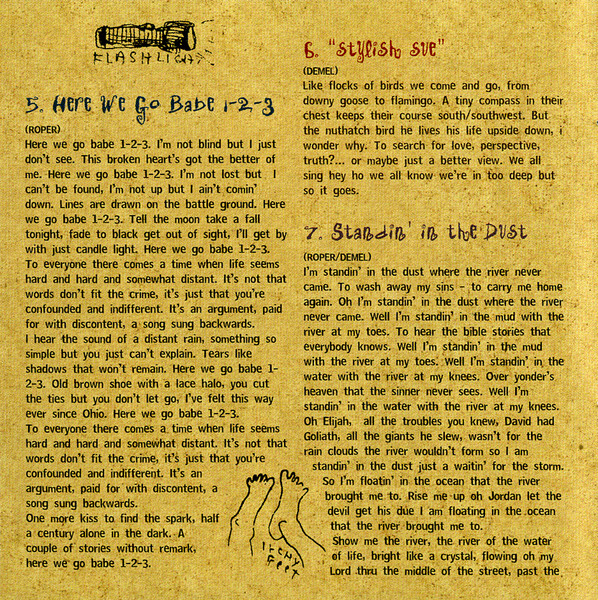 FLASHLIGHT
5. Here We Go Babe 1-2-3
(ROPER)
Here we go babe 1-2-3. I'm not blind but I just
don't see. This broken heart's got the better of
me. Here we go babe 1-2-3. I'm not lost but I
can't be found, I'm not up but I ain't comin'
down. Lines are drawn on the battle ground. Here
we go babe 1-2-3. Tell the moon take a fall
tonight, fade to black get out of sight, I'll get by
with just candle light. Here we go babe 1-2-3.
To everyone there comes a time when life seems
hard and hard and somewhat distant. It's not that
words don't fit the crime, it's just that you're
confounded and indifferent. It's an argument, paid
for with discontent, a song sung backwards.
I hear the sound of a distant rain, something so
simple but you just can't explain. Tears like
shadows that won't remain. Here we go babe 1-
2-3. Old brown shoe with a lace halo, you cut
the ties but you don't let go, I've felt this way
ever since Ohio. Here we go babe 1-2-3.
To everyone there comes a time when life seems
hard and hard and somewhat distant. It's not that
words don't fit the crime, it's just that you're
confounded and indifferent. It's an
argument, paid for with discontent, a
song sung backwards.
One more kiss to find the spark, half
a century alone in the dark. A
couple of stories without remark,
here we go babe 1-2-3.
ITCHY
FEET
6. "Stylish Sue"
(DEMEL)
Like flocks of birds we come and go, from
downy goose to flamingo. A tiny compass in their
chest keeps their course south/southwest. But
the nuthatch bird he lives his life upside down, i
wonder why. To search for love, perspective,
truth?... or maybe just a better view. We all
sing hey ho we all know we're in too deep but
so it goes.
7. Standin' in the Dust
(ROPER/DEMEL)
I'm standin' in the dust where the river never
came. To wash away my sins - to carry me home
again. Oh I'm standin' in the dust where the river
never came. Well I'm standin' in the mud with the
river at my toes. To hear the bible stories that
everybody knows. Well I'm standin' in the mud
with the river at my toes. Well I'm standin' in the
water with the river at my knees. Over yonder's
heaven that the sinner never sees. Well I'm
standin' in the water with the river at my knees.
Oh Elijah, all the troubles you knew, David had
Goliath, all the giants he slew, wasn't for the
rain clouds the river wouldn't form so I am
standin' in the dust just a waitin' for the storm.
So I'm floatin' in the ocean that the river
brought me to. Rise me up oh Jordan let the
devil get his due I am floating in the ocean
that the river brought me to.
Show me the river, the river of the water
of life, bright like a crystal, flowing oh my
Lord thru the middle of the street, past the